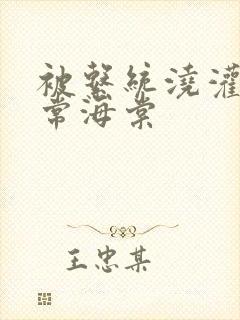 被繫統澆灌
常海棠
王忠某